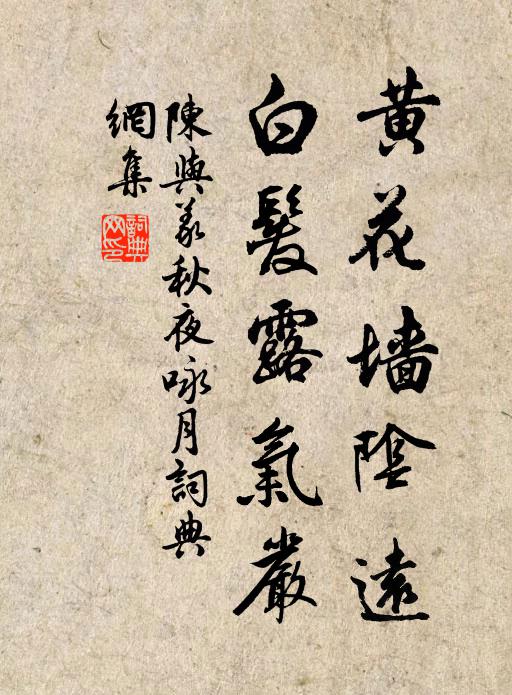 黃花墻陰遠
白髮露氣嚴
陳與義秋夜咏月詞典
網集
詞典
网印